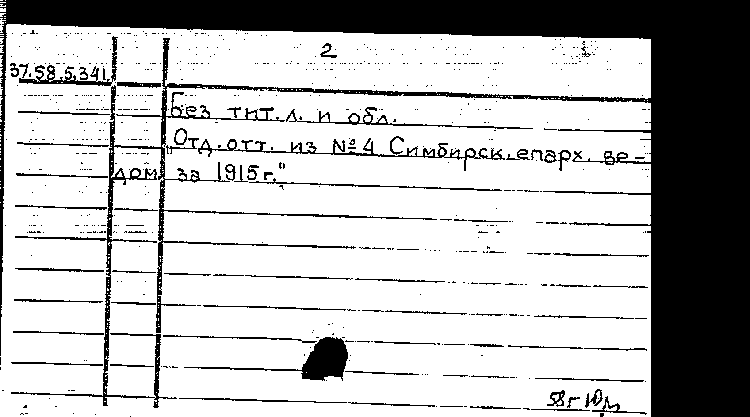 2
37.58.5.341.
Без тит.л. и обл.
"Отд.отт. из №4 Симбирск.епарх. ве-
дом. за 1915г."
58г